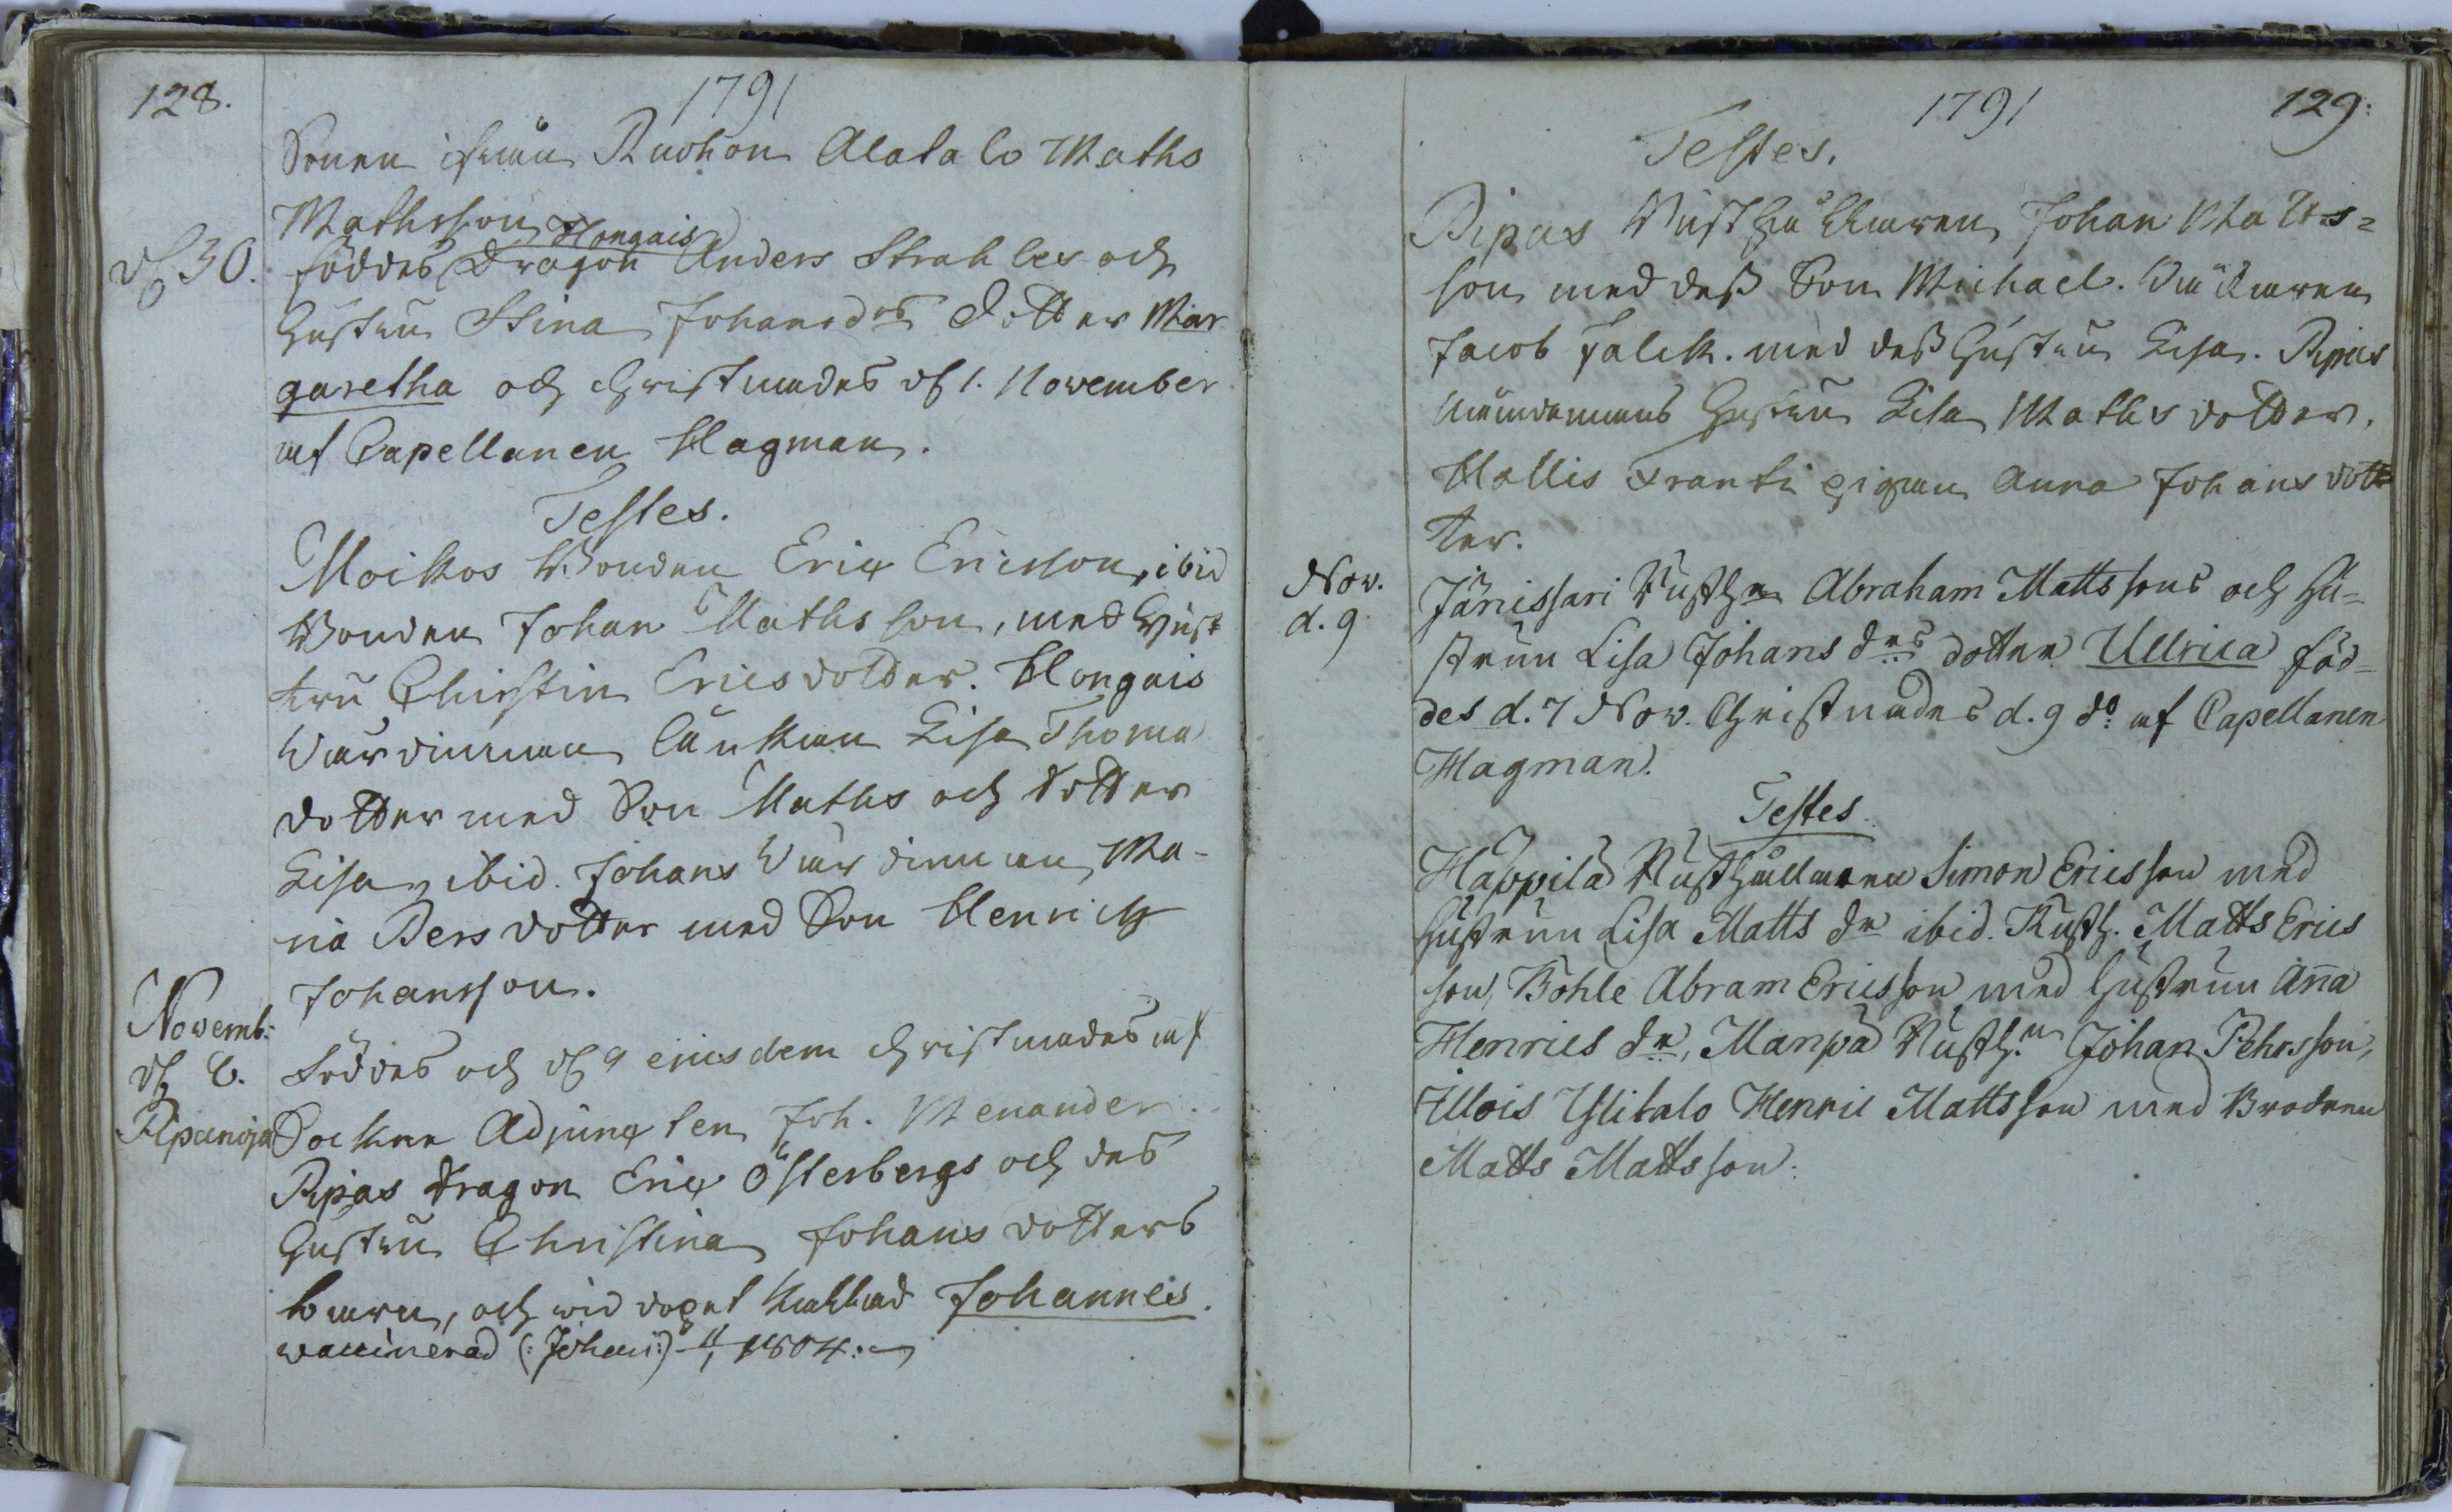 128.
1791
Sonen ifrån Ruohon Alatalo Maths
Mathsson
Hongais
d. 30.
föddes Dragon Anders Strahles och
Hustru Stina Johansdrs dotter Mar
garetha och Christnades d. 1. November
af Capellanen Hagman.
Testes.
Moikos Bonden Eric Ericsson, ibid
Bonden Johan Mathsson, med Hust
tru Chirstin Ericsdotter. Hongais
Wärdinnan Enkian Lisa Thoma
dotter med Son Maths och dotter
Lisa, ibid. Johans Wärdinnan Ma-
ria Persdotter med Son Henrich
Johansson.
Novemb:
d. 6.
Ripanoja
föddes och d. 9 ejusdem christnades af
Sockne Adjuncten Joh. Menander.
Ripas Dragon Eric Österbergs och des
Hustru Christina Johansdotters
barn, och wid dopet kallad Johannes.
waccinerad (: Johan :) 1804.
1791
129:
Testes.
Ripas Rusthållaren Johan Matts=
son med dess Son Michael.
Jacob Falck. med dess Hustru Lisa. Ripas
Nämdemans Hustru Lisa Mathsdotter.
Hollis Frantsi pigan Anna Johansdot
ter.
Nov.
d. 9
Jänissari Rusth:n Abraham Mattssons och Hu=
strun Lisa Johans drs dotter Ullrica föd=
des d. 7 Nov. Christnades d. 9 do af Capellanen
Hagman.
Testes.
Happila Rusthållaren Simon Ericsson med
Hustrun Lisa Matts dr ibid. Rusth. Matts Erics
son, Bohle Abram Ericsson med Hustrun Ana
Henrics dr, Manpä Rusth.n Johan Pehrsson,
Illois Ylitalo Henric Mattsson med Brodren
Matts Mattsson.